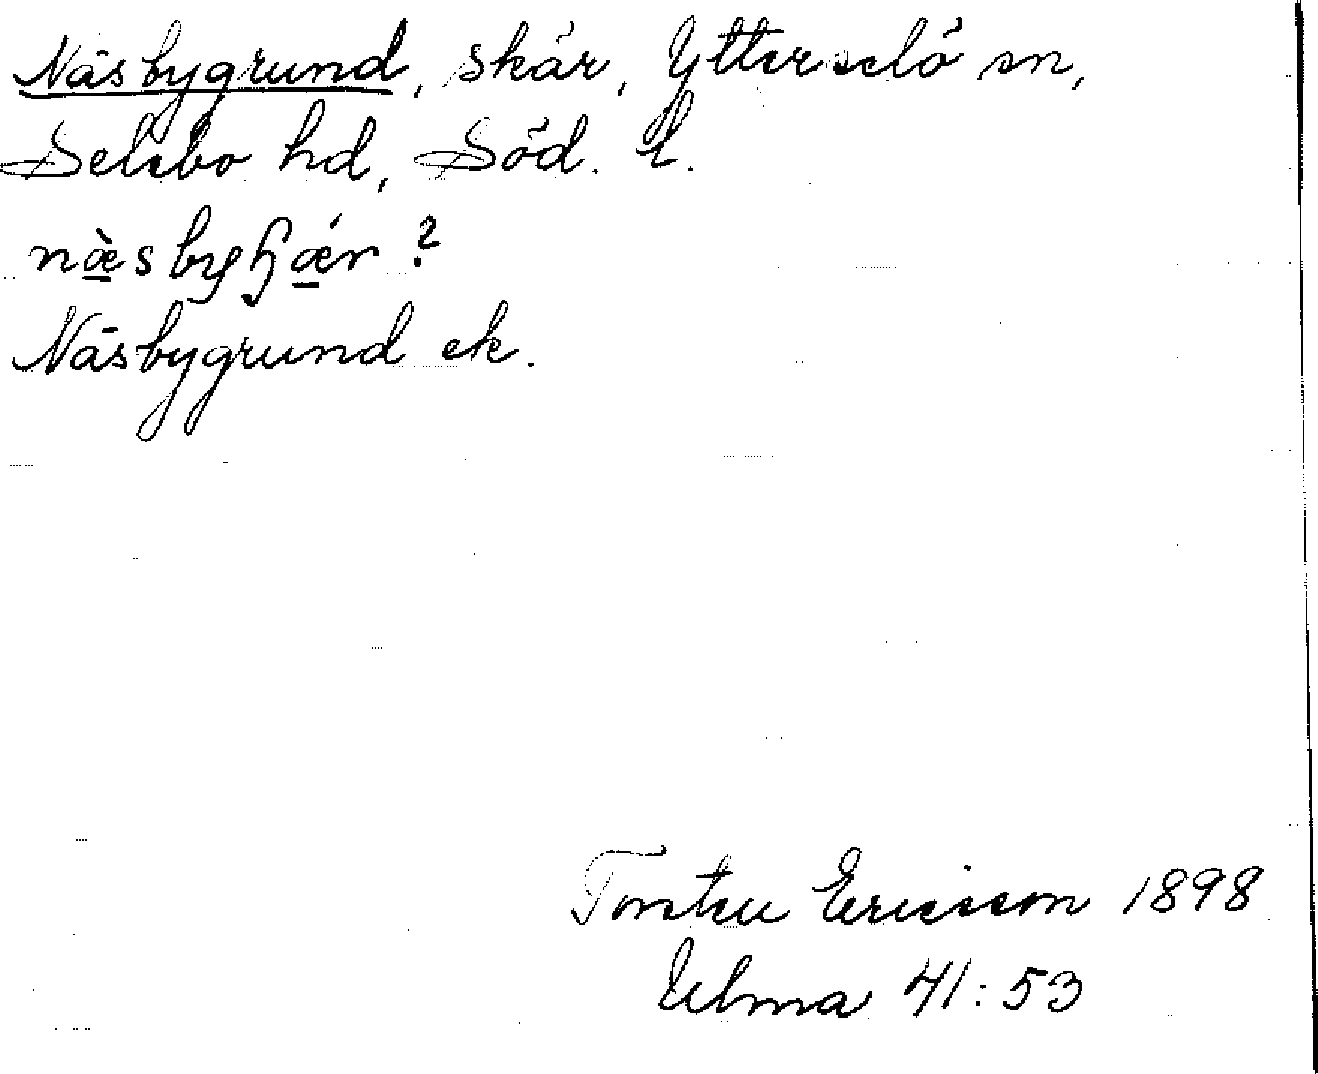 Näsbygrund, skär, Ytterselö sn,
Selebo hd, Söd. l.
næ̀sbyɧǽr ?
Näsbygrund ek.
Torsten Ericsson 1898
Ulma 41:53